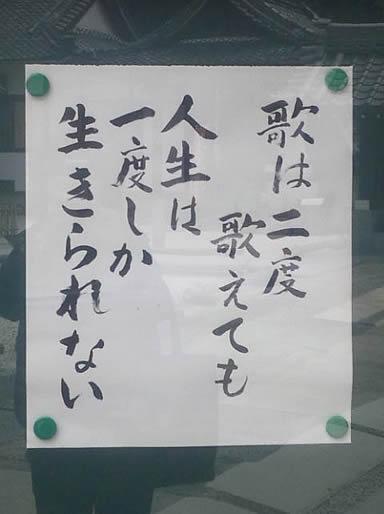 歌は二度
歌えても
人生は
一度しか
生きられない